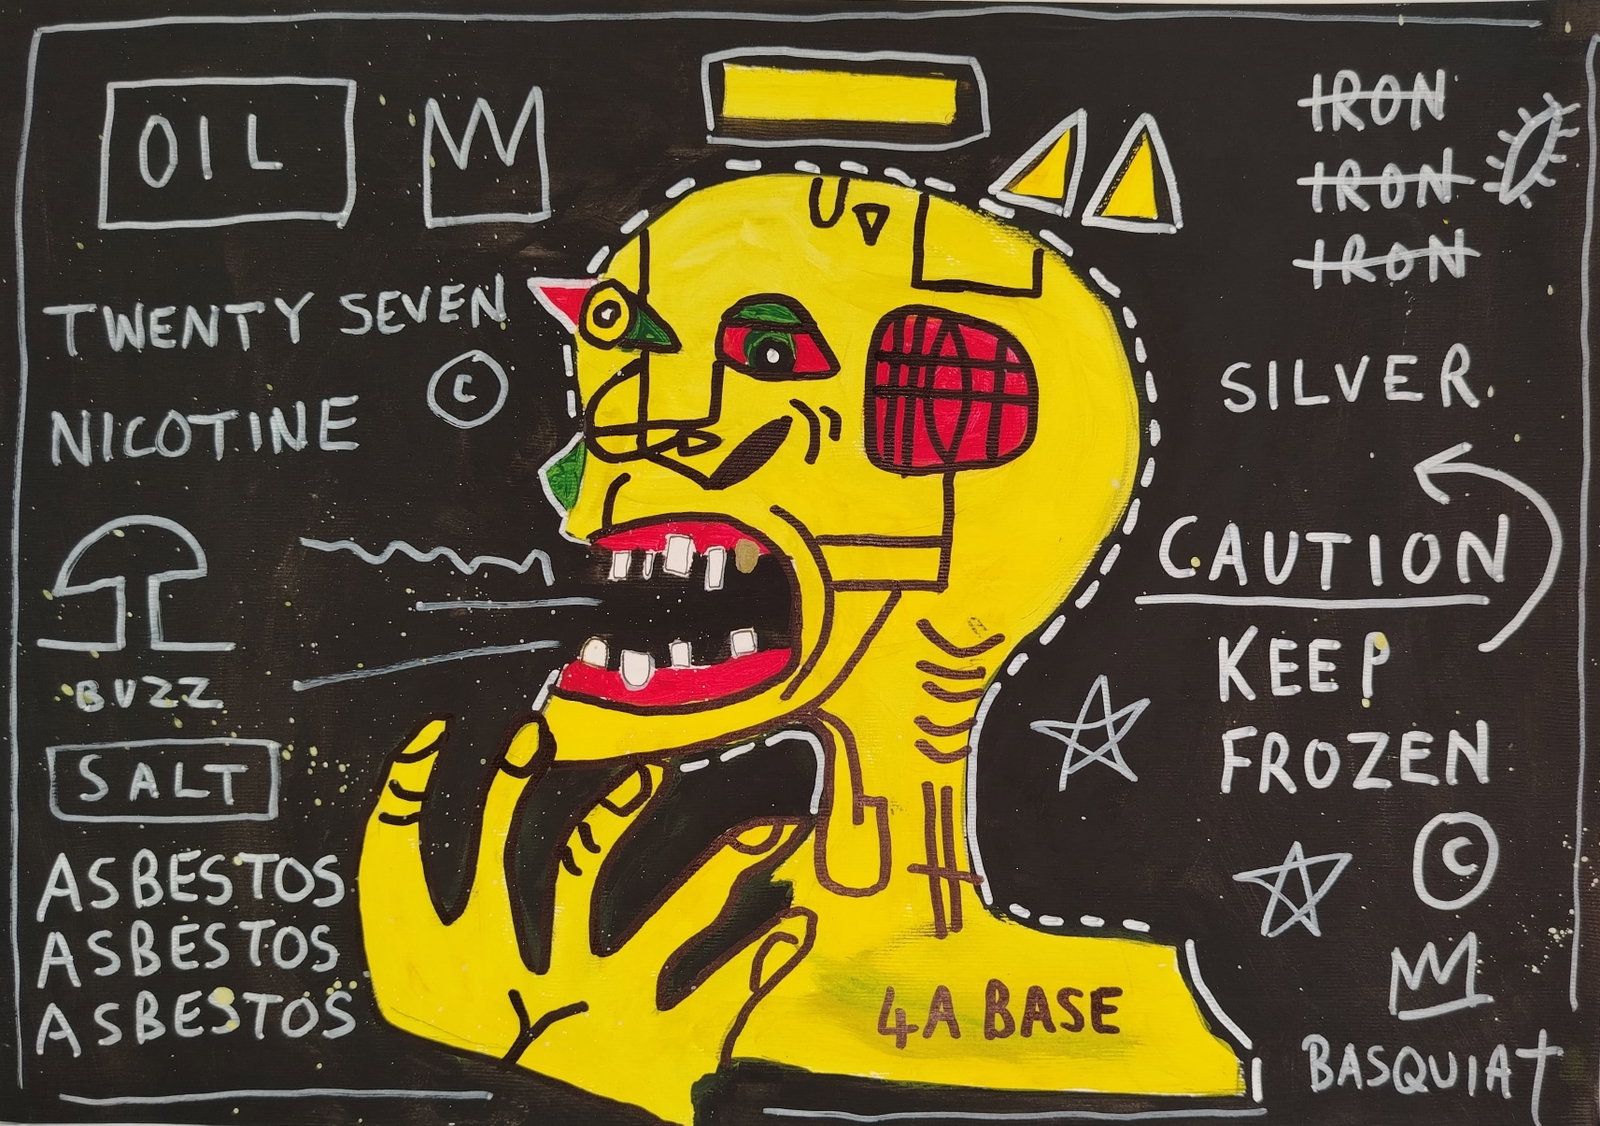 OIL
TWENTY SEVEN
©
NICOTINE
BUZZ
SALT
ASBESTOS
ASBESTOS
ASBESTOS
4A BASE
IRON
IRON
IRON
SILVER
CAUTION
KEEP
FROZEN
©
BASQUIAT